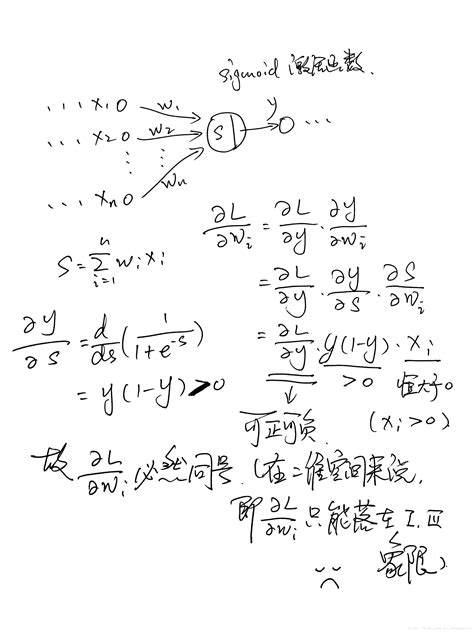 sigmoid 激活函数.
... x₁ w₁
... x₂ w₂ S y ...
⋮ ⋮
... xₙ wₙ
∂L/∂wᵢ = ∂L/∂y · ∂y/∂wᵢ
S = Σᵢ₌₁ⁿ wᵢxᵢ
= ∂L/∂y · ∂y/∂S · ∂S/∂wᵢ
∂y/∂S = d/ds (1/(1+e⁻ˢ))
= ∂L/∂y · y(1-y) · xᵢ
= y(1-y) > 0
>0 恒大于0
↓
可正可负. (xᵢ>0)
故 ∂L/∂wᵢ 必然同号. (在二维空间来说,
即 ∂L/∂wᵢ 只能落在 I, III
象限)